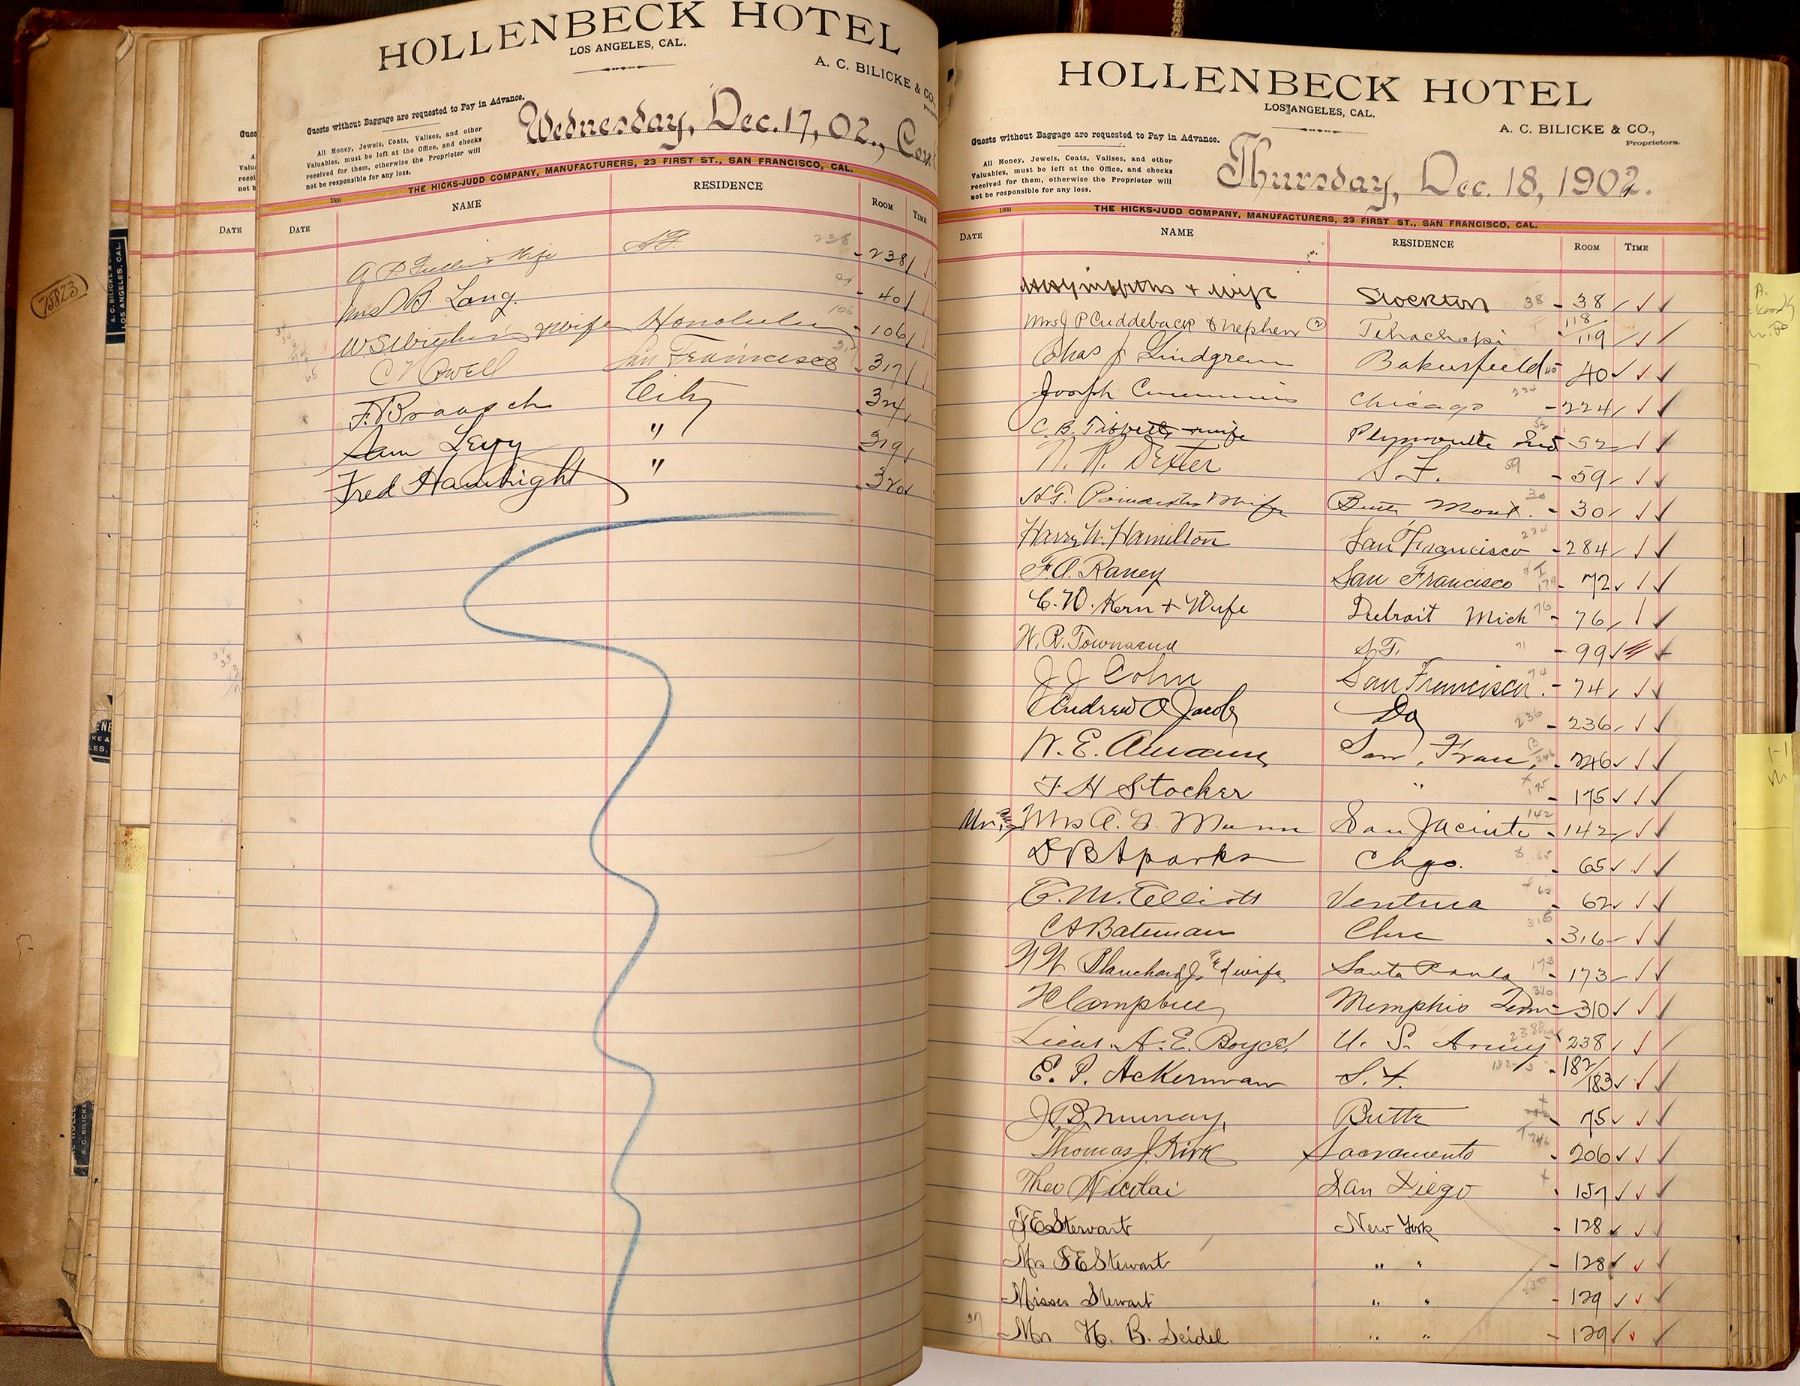 HOLLENBECK HOTEL
LOS ANGELES, CAL.
A. C. BILICKE & CO.,
Guests without Baggage are requested to Pay in Advance.
All Money, Jewels, Coats, Valises, and other
Valuables, must be left at the Office, and checks
received for them, otherwise the Proprietor will
not be responsible for any loss.
Wednesday, Dec. 17, 02.,
THE HICKS-JUDD COMPANY, MANUFACTURERS, 23 FIRST ST., SAN FRANCISCO, CAL.
1900
DATE NAME RESIDENCE ROOM TIME
Wife S.F. 238 - 238
Mrs Lang - 40
wife Honolulu 106 - 106
San Francisco 317 317
F. Braasch City
Sam Levy " 319
Fred " 320
75823
DATE
HOLLENBECK HOTEL
LOS ANGELES, CAL.
A. C. BILICKE & CO.,
Proprietors.
Guests without Baggage are requested to Pay in Advance.
All Money, Jewels, Coats, Valises, and other
Valuables, must be left at the Office, and checks
received for them, otherwise the Proprietor will
not be responsible for any loss.
Thursday, Dec. 18, 1902.
THE HICKS-JUDD COMPANY, MANUFACTURERS, 23 FIRST ST., SAN FRANCISCO, CAL.
1900
DATE NAME RESIDENCE ROOM TIME
+ wife Stockton 38 - 38
Mrs J P Cuddeback & nephew (2) Tehachapi 118/119
Chas J Lindgren Bakersfield 40
Joseph Cummins Chicago 224 - 224
C. B. Tibbetts + wife Plymouth Ind 52 52
N. R. Dexter S. F. 59 - 59
Wife Butte Mont. 30 - 30
Harry W. Hamilton San Francisco 284 - 284
F. A. Raney San Francisco - 72
C. W. Kern + Wife Detroit Mich 76 - 76
W. R. Townsend S. F. 71 - 99
J J Cohn San Francisco. 74 - 74
Andrew O Jacob Do 236 - 236
W. E. San Fran. 246 - 246
F H Stocker " 175 - 175
Mrs A. G. Munn San Jacinto 142 - 142
D B Sparks Chgo. 65 - 65
E. M. Elliott Ventura 62 - 62
C A Bateman 316 - 316
N W Blanchard Jr & wife Santa Paula 173 - 173
H Campbell Memphis Tenn 310 310
Lieut. A. E. Boyce U. S. Army 238 238
E. P. Ackerman S. F. 182/3 - 182/183
J B Murray, Butte - 75
Thomas J. Kirk Sacramento - 206
Theo Nicolai San Diego - 157
F E Stewart New York - 128
Mrs F E Stewart " " - 128
Misses Stewart " " - 129
Mr H. B. Seidel " " - 129